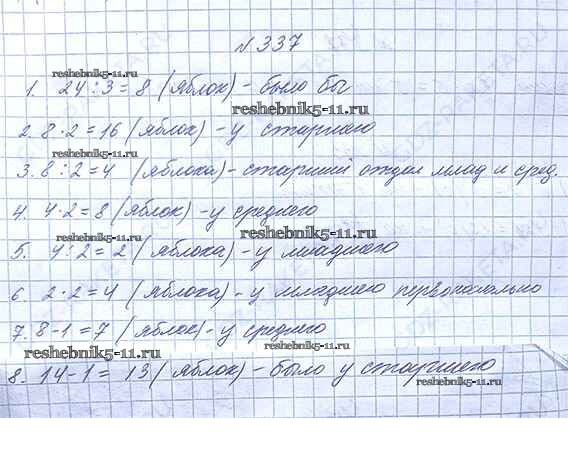 №337
reshebnik5-11.ru
1. 24 : 3 = 8 (яблок) - было бы
reshebnik5-11.ru
2. 8 · 2 = 16 (яблок) - у старшего
reshebnik5-11.ru
3. 8 : 2 = 4 (яблока) - старший отдал млад и сред.
4. 4 · 2 = 8 (яблок) - у среднего
reshebnik5-11.ru
reshebnik5-11.ru
5. 4 : 2 = 2 (яблока) - у младшего
6. 2 · 2 = 4 (яблока) - у младшего первоначально
7. 8 - 1 = 7 (яблок) - у среднего
reshebnik5-11.ru
reshebnik5-11.ru
8. 14 - 1 = 13 (яблок) - было у старшего
reshebnik5-11.ru